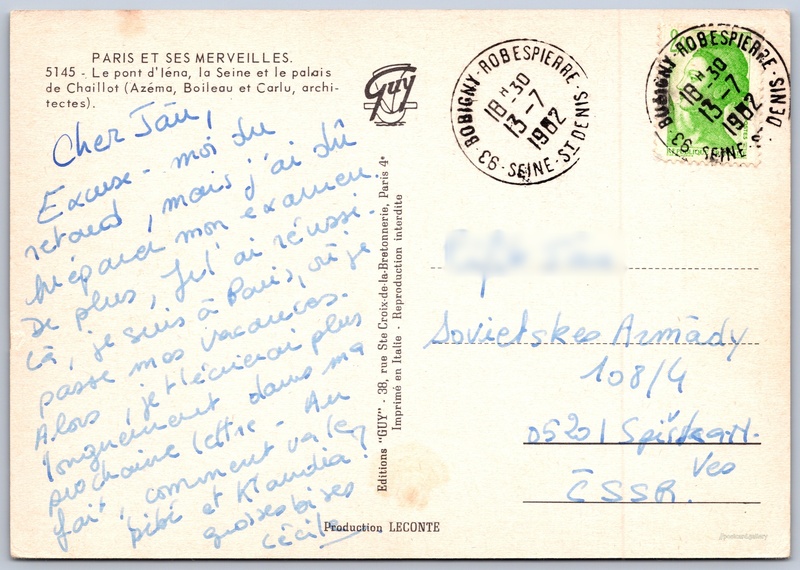 PARIS ET SES MERVEILLES.
5145 - Le pont d'Iéna, la Seine et le palais
de Chaillot (Azéma, Boileau et Carlu, archi-
tectes).
Guy
Cher Ján,
Excuse-moi du
retard, mais j'ai dû
préparé mon examen.
De plus, je l'ai réussi.
Là, je suis à Paris, où je
passe mes vacances.
Alors, je t'écrierai plus
longuement dans ma
prochaine lettre - Au
fait, comment va le
bébé et Klaudia?
grosses bises
Cécile
Editions "GUY" - 38, rue Ste Croix-de-la-Bretonnerie, Paris 4e
Imprimé en Italie - Reproduction interdite
Production LECONTE
BOBIGNY-ROBESPIERRE
18H30
13-7
1982
93-SEINE-ST DENIS
BOBIGNY-ROBESPIERRE
18H30
13-7
1982
93-SEINE-S
Sovietskes Armády
108/4
05201 Spišská N.
Ves
ČSSR.